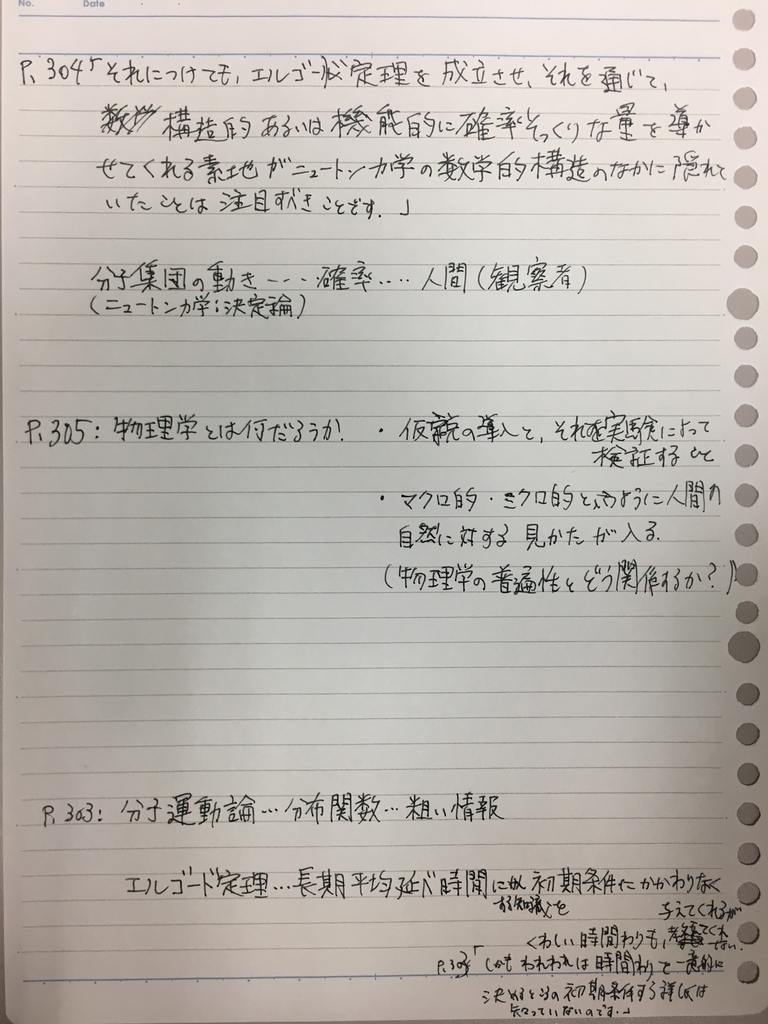 No.　Date
P.304「それにつけても，エルゴード定理を成立させ，それを通じて，
構造的あるいは機能的に確率そっくりな量を導か
せてくれる素地がニュートン力学の数学的構造のなかに隠れて
いたことは注目すべきことです．」
分子集団の動き----確率‥‥人間(観察者)
(ニュートン力学:決定論)
P.305:物理学とは何だろうか.
・仮説の導入と,それを実験によって
検証すること
・マクロ的・ミクロ的というように人間の
自然に対する見かたが入る.
(物理学の普遍性とどう関係するか?)
P.303:分子運動論…分布関数…粗い情報
エルゴード定理…長期平均延べ時間 初期条件にかかわりなく
する知識を 与えてくれるが
くわしい時間わりも,
「しかもわれわれは時間わりを一意的に
決めるときの初期条件 詳しくは
知っていないのです.」